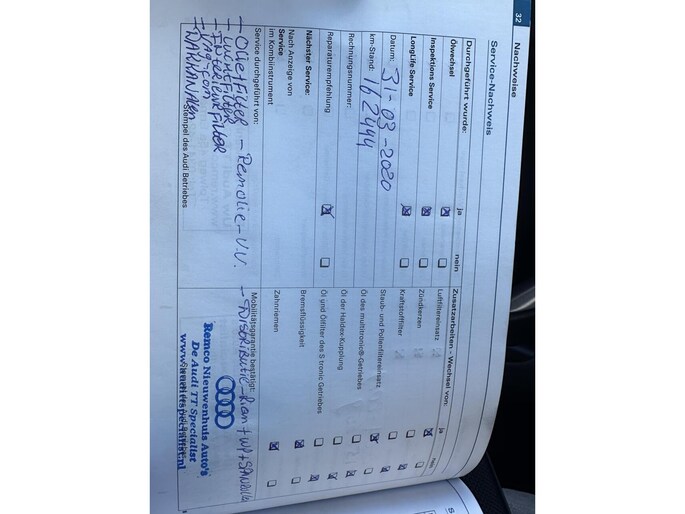 32
Nachweise
Service-Nachweis
Durchgeführt wurde:
ja
nein
Ölwechsel
Inspektions Service
LongLife Service
Datum: 31-03-2020
km-Stand: 162444
Rechnungsnummer:
Reparaturempfehlung
Nächster Service:
Nach Anzeige von
Service
im Kombiinstrument
Service durchgeführt von:
- Olie+Filter - Remolie - V.V. - Distributie-Riem + WP + 
- Luchtfilter
- Interieurfilter
- Vag-com
Stempel des Audi Betriebes
Zusatzarbeiten - Wechsel von:
ja
nein
Luftfiltereinsatz
Zündkerzen
Kraftstofffilter
Staub- und Pollenfiltereinsatz
Öl des multitronic®-Getriebes
Öl der Haldex-Kupplung
Öl und Ölfilter des S tronic Getriebes
Bremsflüssigkeit
Zahnriemen
Mobilitätsgarantie bestätigt:
Remco Nieuwenhuis Auto's
De Audi TT Specialist